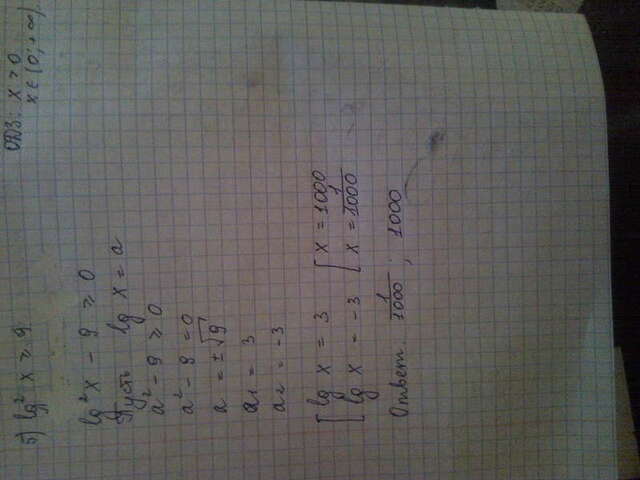 5) lg² x ≥ 9
ОДЗ: x > 0
x ∈ (0; +∞)
lg² x - 9 ≥ 0
Пусть lg x = a
a² - 9 ≥ 0
a² - 9 = 0
a = ±√9
a₁ = 3
a₂ = -3
[ lg x = 3 [ x = 1000
[ lg x = -3 [ x = 1/1000
Ответ: 1/1000 ; 1000